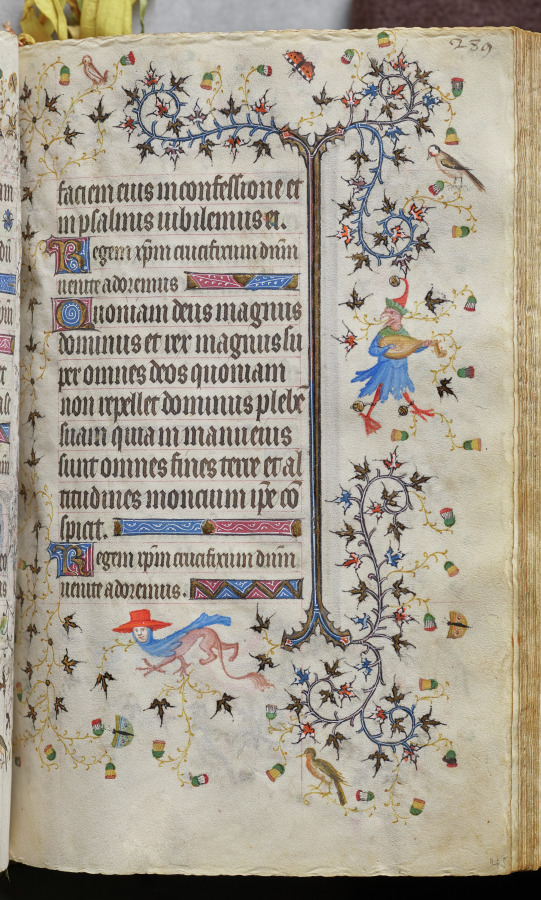 289
faciem eius in confessione et
in psalmis iubilemus ei.
Regem xp̄m crucifixum dn̄m
uenite adoremus
Quoniam deus magnus
dominus et rex magnus su
per omnes deos quoniam
non repellet dominus plebē
suam quia in manu eius
sunt omnes fines terre et al
titudines moncium ip̄e cō
spicit.
Regem xp̄m crucifixum dn̄m
uenite adoremus.